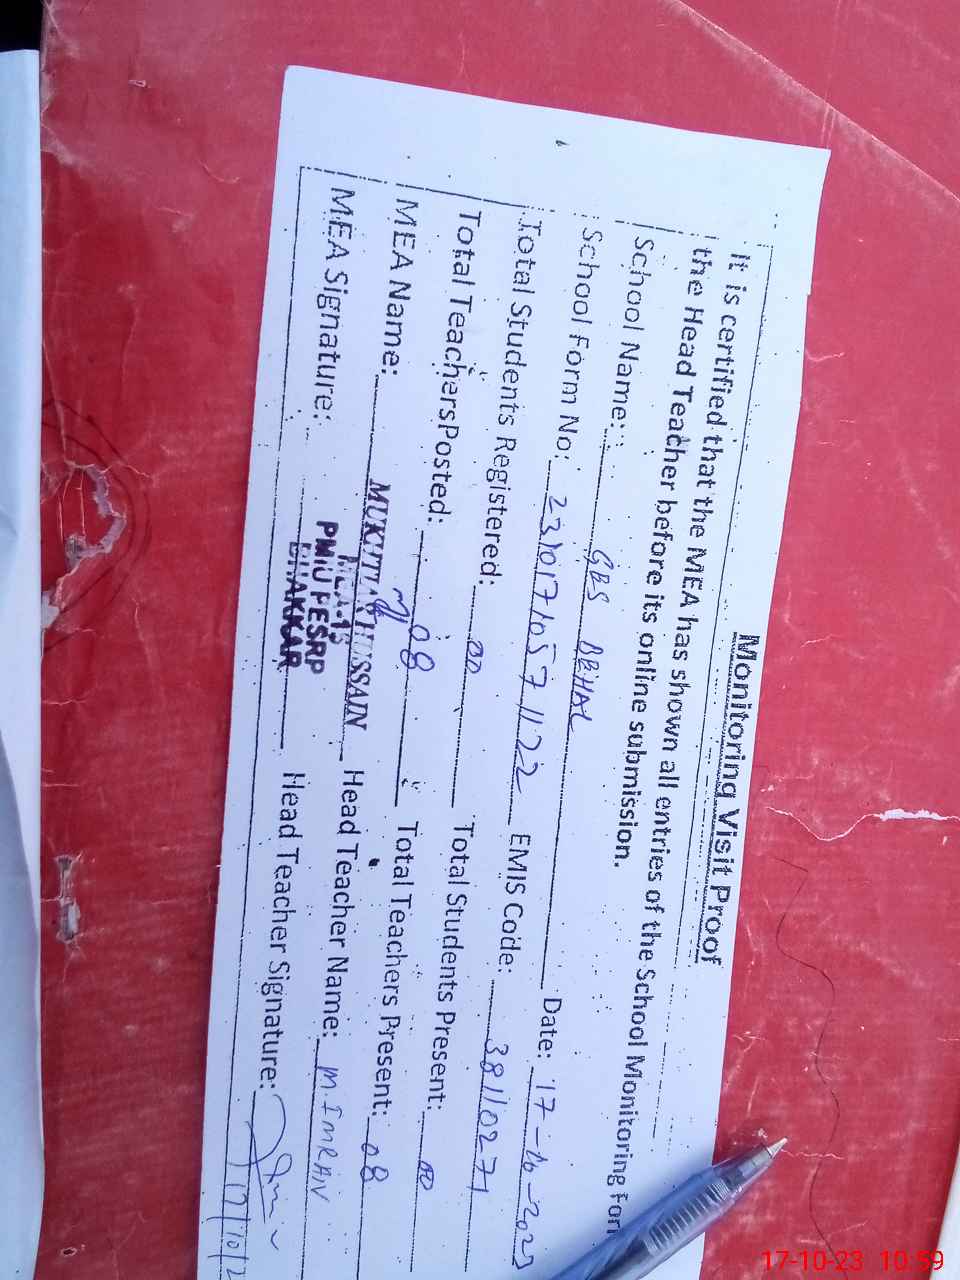 Monitoring Visit Proof
It is certified that the MEA has shown all entries of the School Monitoring Form
the Head Teacher before its online submission.
School Name: GES BEHAL Date: 17-10-2023
School Form No: 23101710571122 EMIS Code: 38110271
Total Students Registered: 00 Total Students Present: 00
Total Teachers Posted: 08 Total Teachers Present: 08
MEA Name: MUKHTAR HUSSAIN Head Teacher Name: M. IMRAN
MEA-13
MEA Signature: PMIU PESRP Head Teacher Signature:
BHAKKAR
17/10/2
17-10-23 10:59